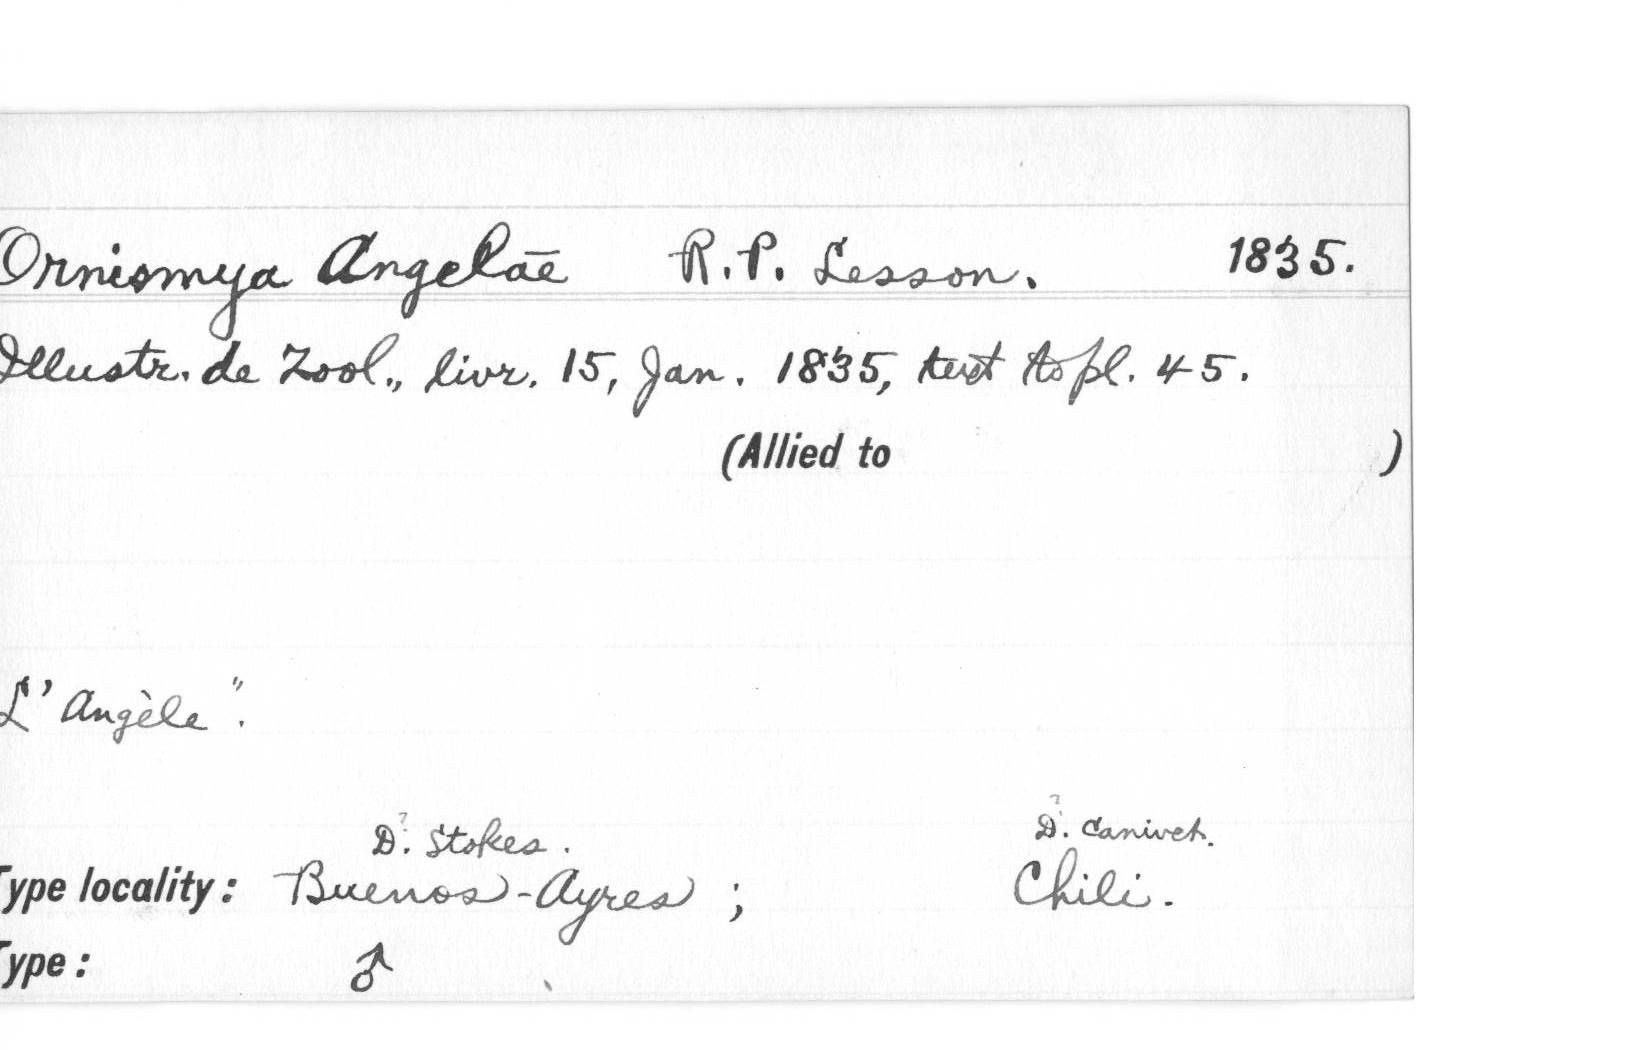 Ornismya Angelae R. P. Lesson. 1835.
Illustr. de Zool., livr. 15, Jan. 1835, text to pl. 45.
(Allied to )
L'Angèle".
D? Stokes. D? Canivet.
Type locality: Buenos-Ayres; Chili.
Type: ♂